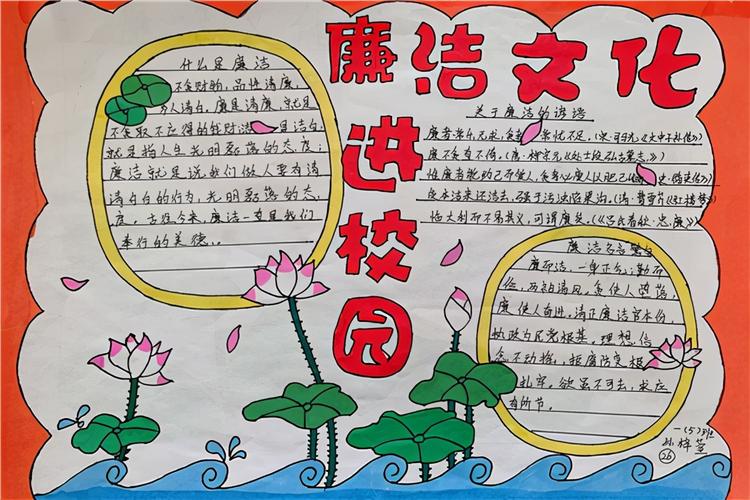 廉洁文化
进校园
什么是廉洁
不贪财物，品性清廉，
为人清白，廉是清廉，就是
不贪取不应得的钱财；洁是洁白，
就是指人生光明磊落的态度；
廉洁就是说我们做人要有清
清白白的行为，光明磊落的态
度，古往今来，廉洁一直是我们
奉行的美德。
关于廉洁的谚语
廉者常乐无求，贪者常忧不足。
廉不贪，直不倚。
性廉者
质本洁来还洁去，强于污淖陷渠沟。（清·曹雪芹《红楼梦》）
临大利而不易其义，可谓廉矣。（《吕氏春秋·忠廉》）
廉洁名言警句
廉而洁，一身正气；勤而
俭，两袖清风。贪使人堕落，
廉使人奋进。清正廉洁官本份，
执政为民党根基，理想信
念不动摇，拒腐防变根
扎牢。欲虽不可去，求应
有所节。
一（5）班
孙梓萱
26